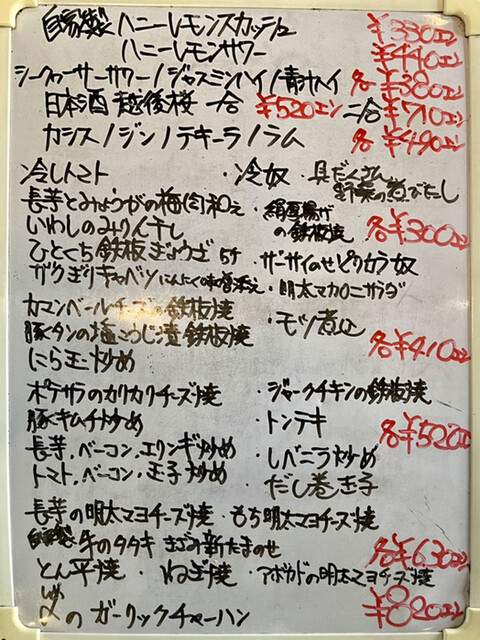 自家製 ハニーレモンスカッシュ ¥330エン
ハニーレモンサワー ¥440エン
シークヮーサーサワー/ジャスミンハイ/青汁ハイ 各¥380エン
日本酒 越後桜 一合 ¥520エン 二合 ¥710エン
カシス/ジン/テキーラ/ラム 各¥490エン
冷しトマト ・冷奴 ・具だくさん野菜の煮びたし
長芋とみょうがの梅肉和え ・絹厚揚げの鉄板焼
いわしのみりん干し 各¥300エン
ひとくち鉄板ぎょうざ 5ケ ・ザーサイのせピリカラ奴
ザクぎりキャベツにんにく味噌添え ・明太マカロニサラダ
カマンベールチーズの鉄板焼 ・モツ煮込
豚タンの塩こうじ漬鉄板焼 各¥410エン
にら玉炒め
ポテサラのカリカリチーズ焼 ・ジャークチキンの鉄板焼
豚キムチ炒め ・トンテキ 各¥520エン
長芋、ベーコン、エリンギ炒め ・レバニラ炒め
トマト、ベーコン、玉子炒め だし巻玉子
長芋の明太マヨチーズ焼 ・もち明太マヨチーズ焼
自家製 牛のタタキ きざみ新たまのせ 各¥630エン
とん平焼 ・ねぎ焼 ・アボカドの明太マヨチーズ焼
〆のガーリックチャーハン ¥820エン